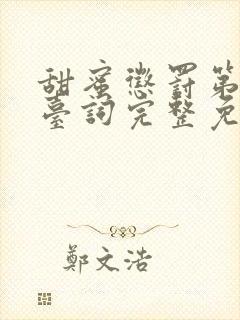 甜蜜懲罰第
臺詞完整免
鄭文浩